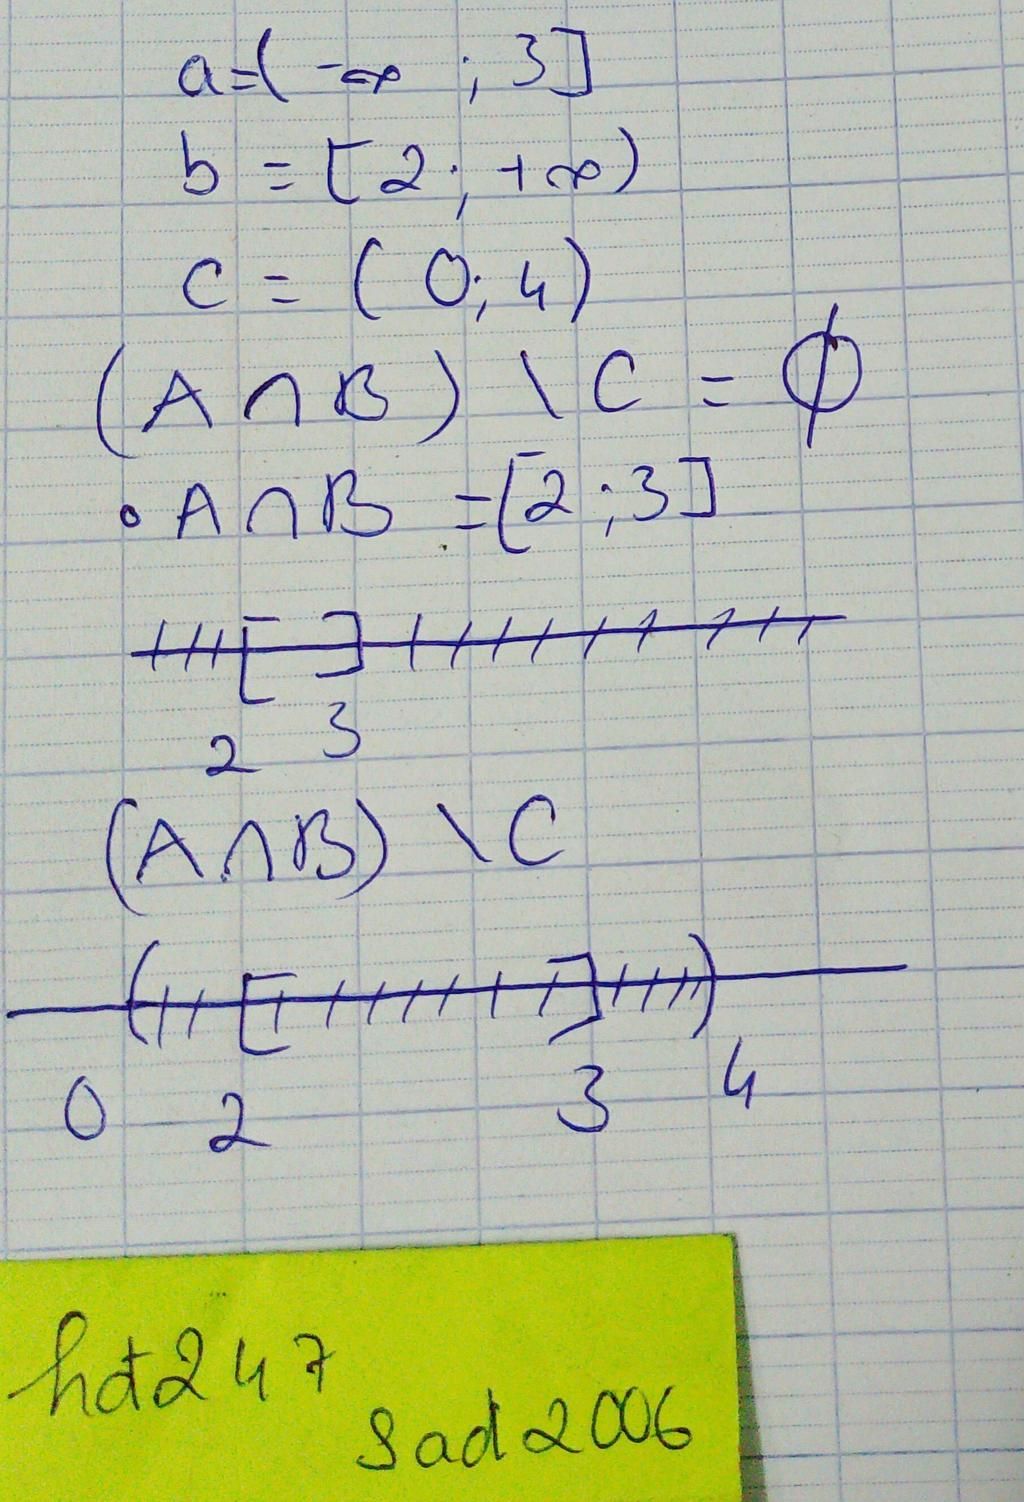 a=(-∞ ; 3]
b = [2; +∞)
c = (0; 4)
(A∩B) \ C = ∅
• A∩B = [2 ; 3]
[ ]
2 3
(A∩B) \ C
( [ ] )
0 2 3 4
hdt247
sad2006